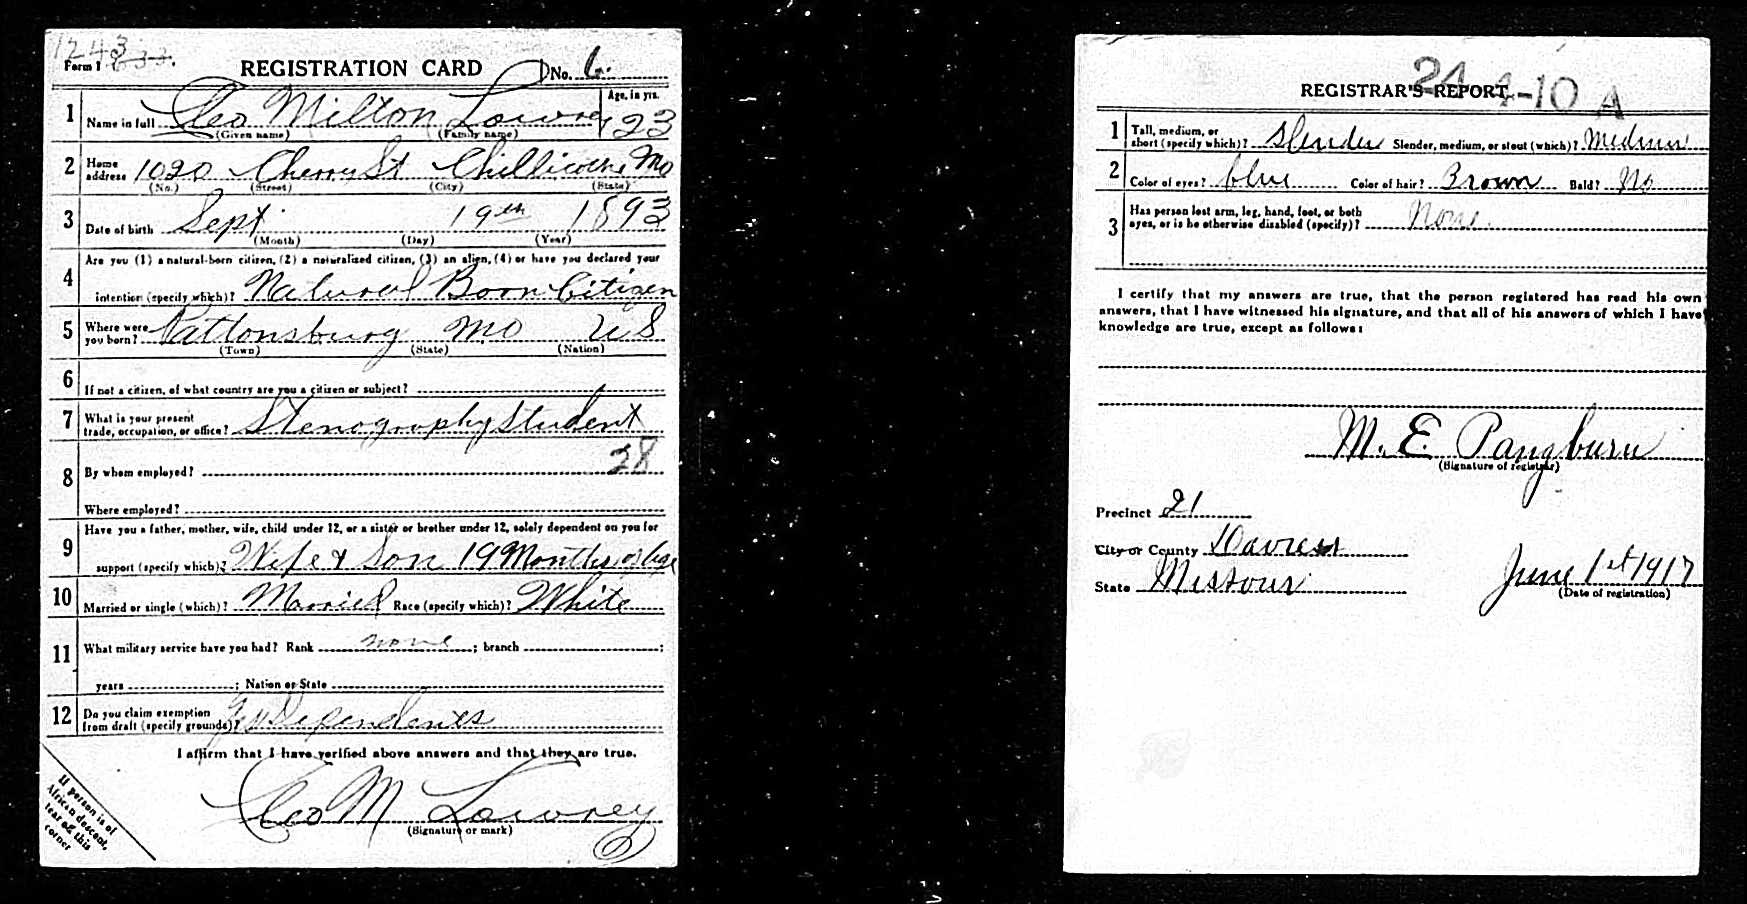 1243 633.
Form 1 REGISTRATION CARD No. 6
1 Name in full Geo Milton Lowrey Age, in yrs. 23
(Given name) (Family name)
2 Home address 1020 Cherry St Chillicothe Mo
(No.) (Street) (City) (State)
3 Date of birth Sept. 19th 1893
(Month) (Day) (Year)
4 Are you (1) a natural-born citizen, (2) a naturalized citizen, (3) an alien, (4) or have you declared your
intention (specify which)? Natural Born Citizen
5 Where were you born? Pattonsburg Mo US
(Town) (State) (Nation)
6 If not a citizen, of what country are you a citizen or subject?
7 What is your present trade, occupation, or office? Stenography Student
28
8 By whom employed?
Where employed?
9 Have you a father, mother, wife, child under 12, or a sister or brother under 12, solely dependent on you for
support (specify which)? Wife & Son 19 Months of age
10 Married or single (which)? Married Race (specify which)? White
11 What military service have you had? Rank none ; branch ;
years ; Nation or State
12 Do you claim exemption from draft (specify grounds)? Yes Dependents
I affirm that I have verified above answers and that they are true.
Geo M Lowrey
(Signature or mark)
If person is of
African descent,
tear off this
corner
24-4-10 A
REGISTRAR'S REPORT
1 Tall, medium, or short (specify which)? Slender Slender, medium, or stout (which)? Medium
2 Color of eyes? blue Color of hair? Brown Bald? No
3 Has person lost arm, leg, hand, foot, or both
eyes, or is he otherwise disabled (specify)? None.
I certify that my answers are true, that the person registered has read his own
answers, that I have witnessed his signature, and that all of his answers of which I have
knowledge are true, except as follows:
M. E. Pangburn
(Signature of registrar)
Precinct 21
City or County Daviess
State Missouri June 1st 1917
(Date of registration)